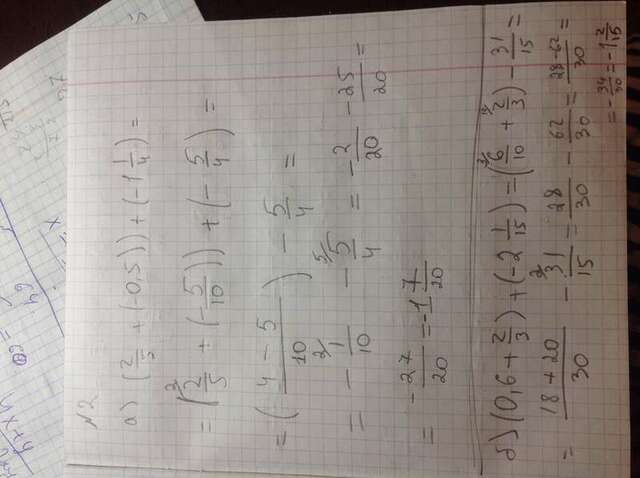 №2
а) (2/5 + (-0,5)) + (-1 1/4) =
= (2/5 + (-5/10)) + (-5/4) =
= ((4 - 5)/10) - 5/4 =
= - 1/10 - 5/4 = -2/20 -25/20 =
= -27/20 = -1 7/20
б) (0,6 + 2/3) + (-2 1/15) = (6/10 + 2/3) - 31/15 =
= (18 + 20)/30 - 31/15 = 28/30 - 62/30 = (28 - 62)/30 =
= - 34/30 = -1 2/15